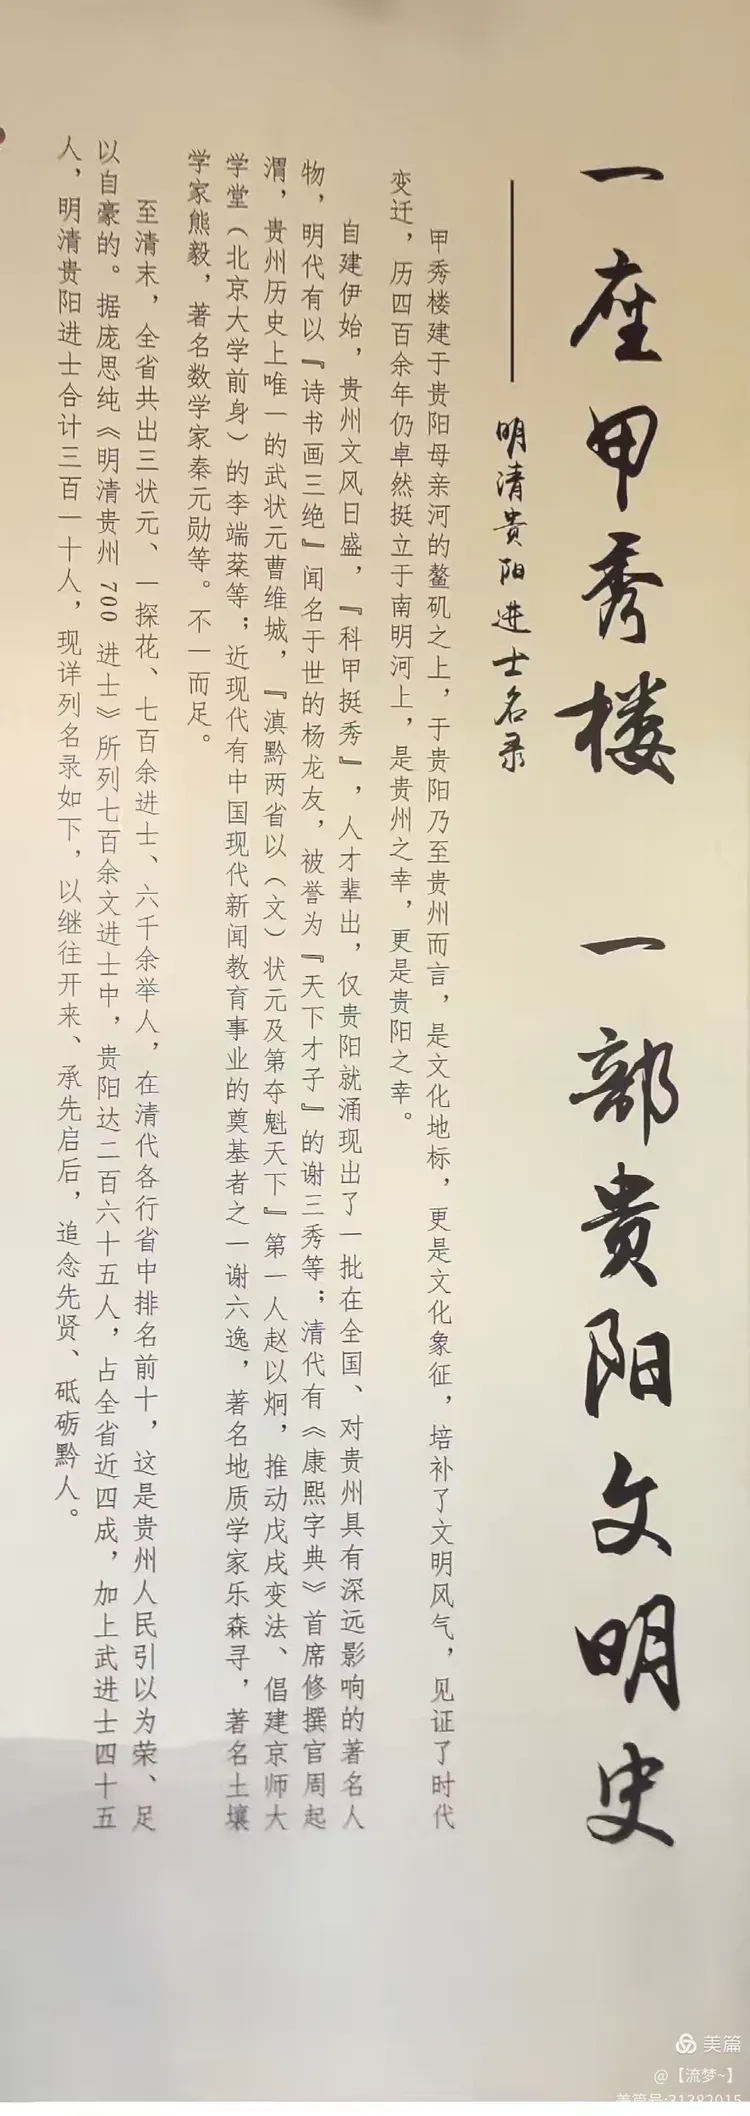 一座甲秀楼 一部贵阳文明史
——明清贵阳进士名录
甲秀楼建于贵阳母亲河的鳌矶之上，于贵阳乃至贵州而言，是文化地标，更是文化象征，培补了文明风气，见证了时代
变迁，历四百余年仍卓然挺立于南明河上，是贵州之幸，更是贵阳之幸。
自建伊始，贵州文风日盛，『科甲挺秀』，人才辈出，仅贵阳就涌现出了一批在全国、对贵州具有深远影响的著名人
物，明代有以『诗书画三绝』闻名于世的杨龙友，被誉为『天下才子』的谢三秀等；清代有《康熙字典》首席修撰官周起
渭，贵州历史上唯一的武状元曹维城，『滇黔两省以（文）状元及第夺魁天下』第一人赵以炯，推动戊戌变法、倡建京师大
学堂（北京大学前身）的李端棻等；近现代有中国现代新闻教育事业的奠基者之一谢六逸，著名地质学家乐森寻，著名土壤
学家熊毅，著名数学家秦元勋等。不一而足。
至清末，全省共出三状元、一探花、七百余进士、六千余举人，在清代各行省中排名前十，这是贵州人民引以为荣、足
以自豪的。据庞思纯《明清贵州 700 进士》所列七百余文进士中，贵阳达二百六十五人，占全省近四成，加上武进士四十五
人，明清贵阳进士合计三百一十人，现详列名录如下，以继往开来、承先启后，追念先贤、砥砺黔人。
美篇
@【流梦~】
美篇号:31382015